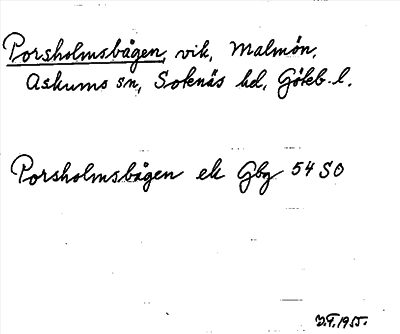 Porsholmsbågen, vik, Malmön,
Askums sn, Sotenäs hd, Göteb. l.
Porsholmsbågen ek Gbg 54 SO
1955.